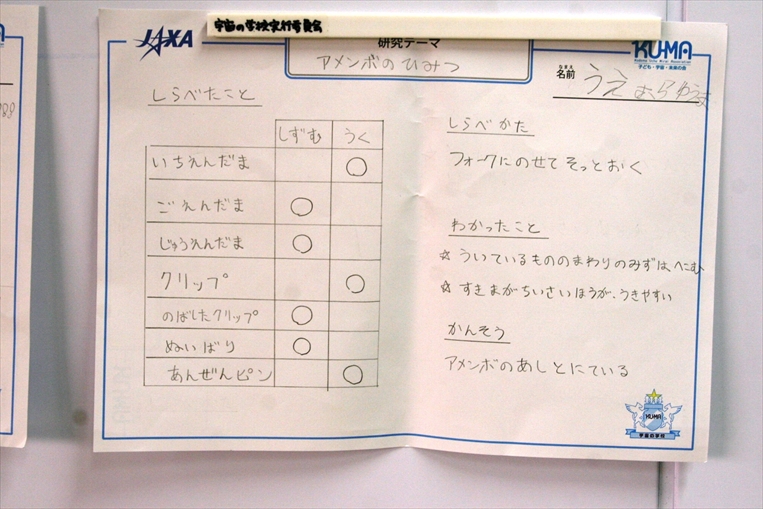 宇宙の学校実行委員会
JAXA
研究テーマ
アメンボのひみつ
KU-MA
子ども・宇宙・未来の会
なまえ
名前 うえむらゆうま
しらべたこと
しずむ うく
いちえんだま ○
ごえんだま ○
じゅうえんだま ○
クリップ ○
のばしたクリップ ○
ぬいばり ○
あんぜんピン ○
しらべかた
フォークにのせてそっとおく
わかったこと
☆ ういているもののまわりのみずは、へこむ
☆ すきまがちいさいほうが、うきやすい
かんそう
アメンボのあしとにている
KU-MA
宇宙の学校